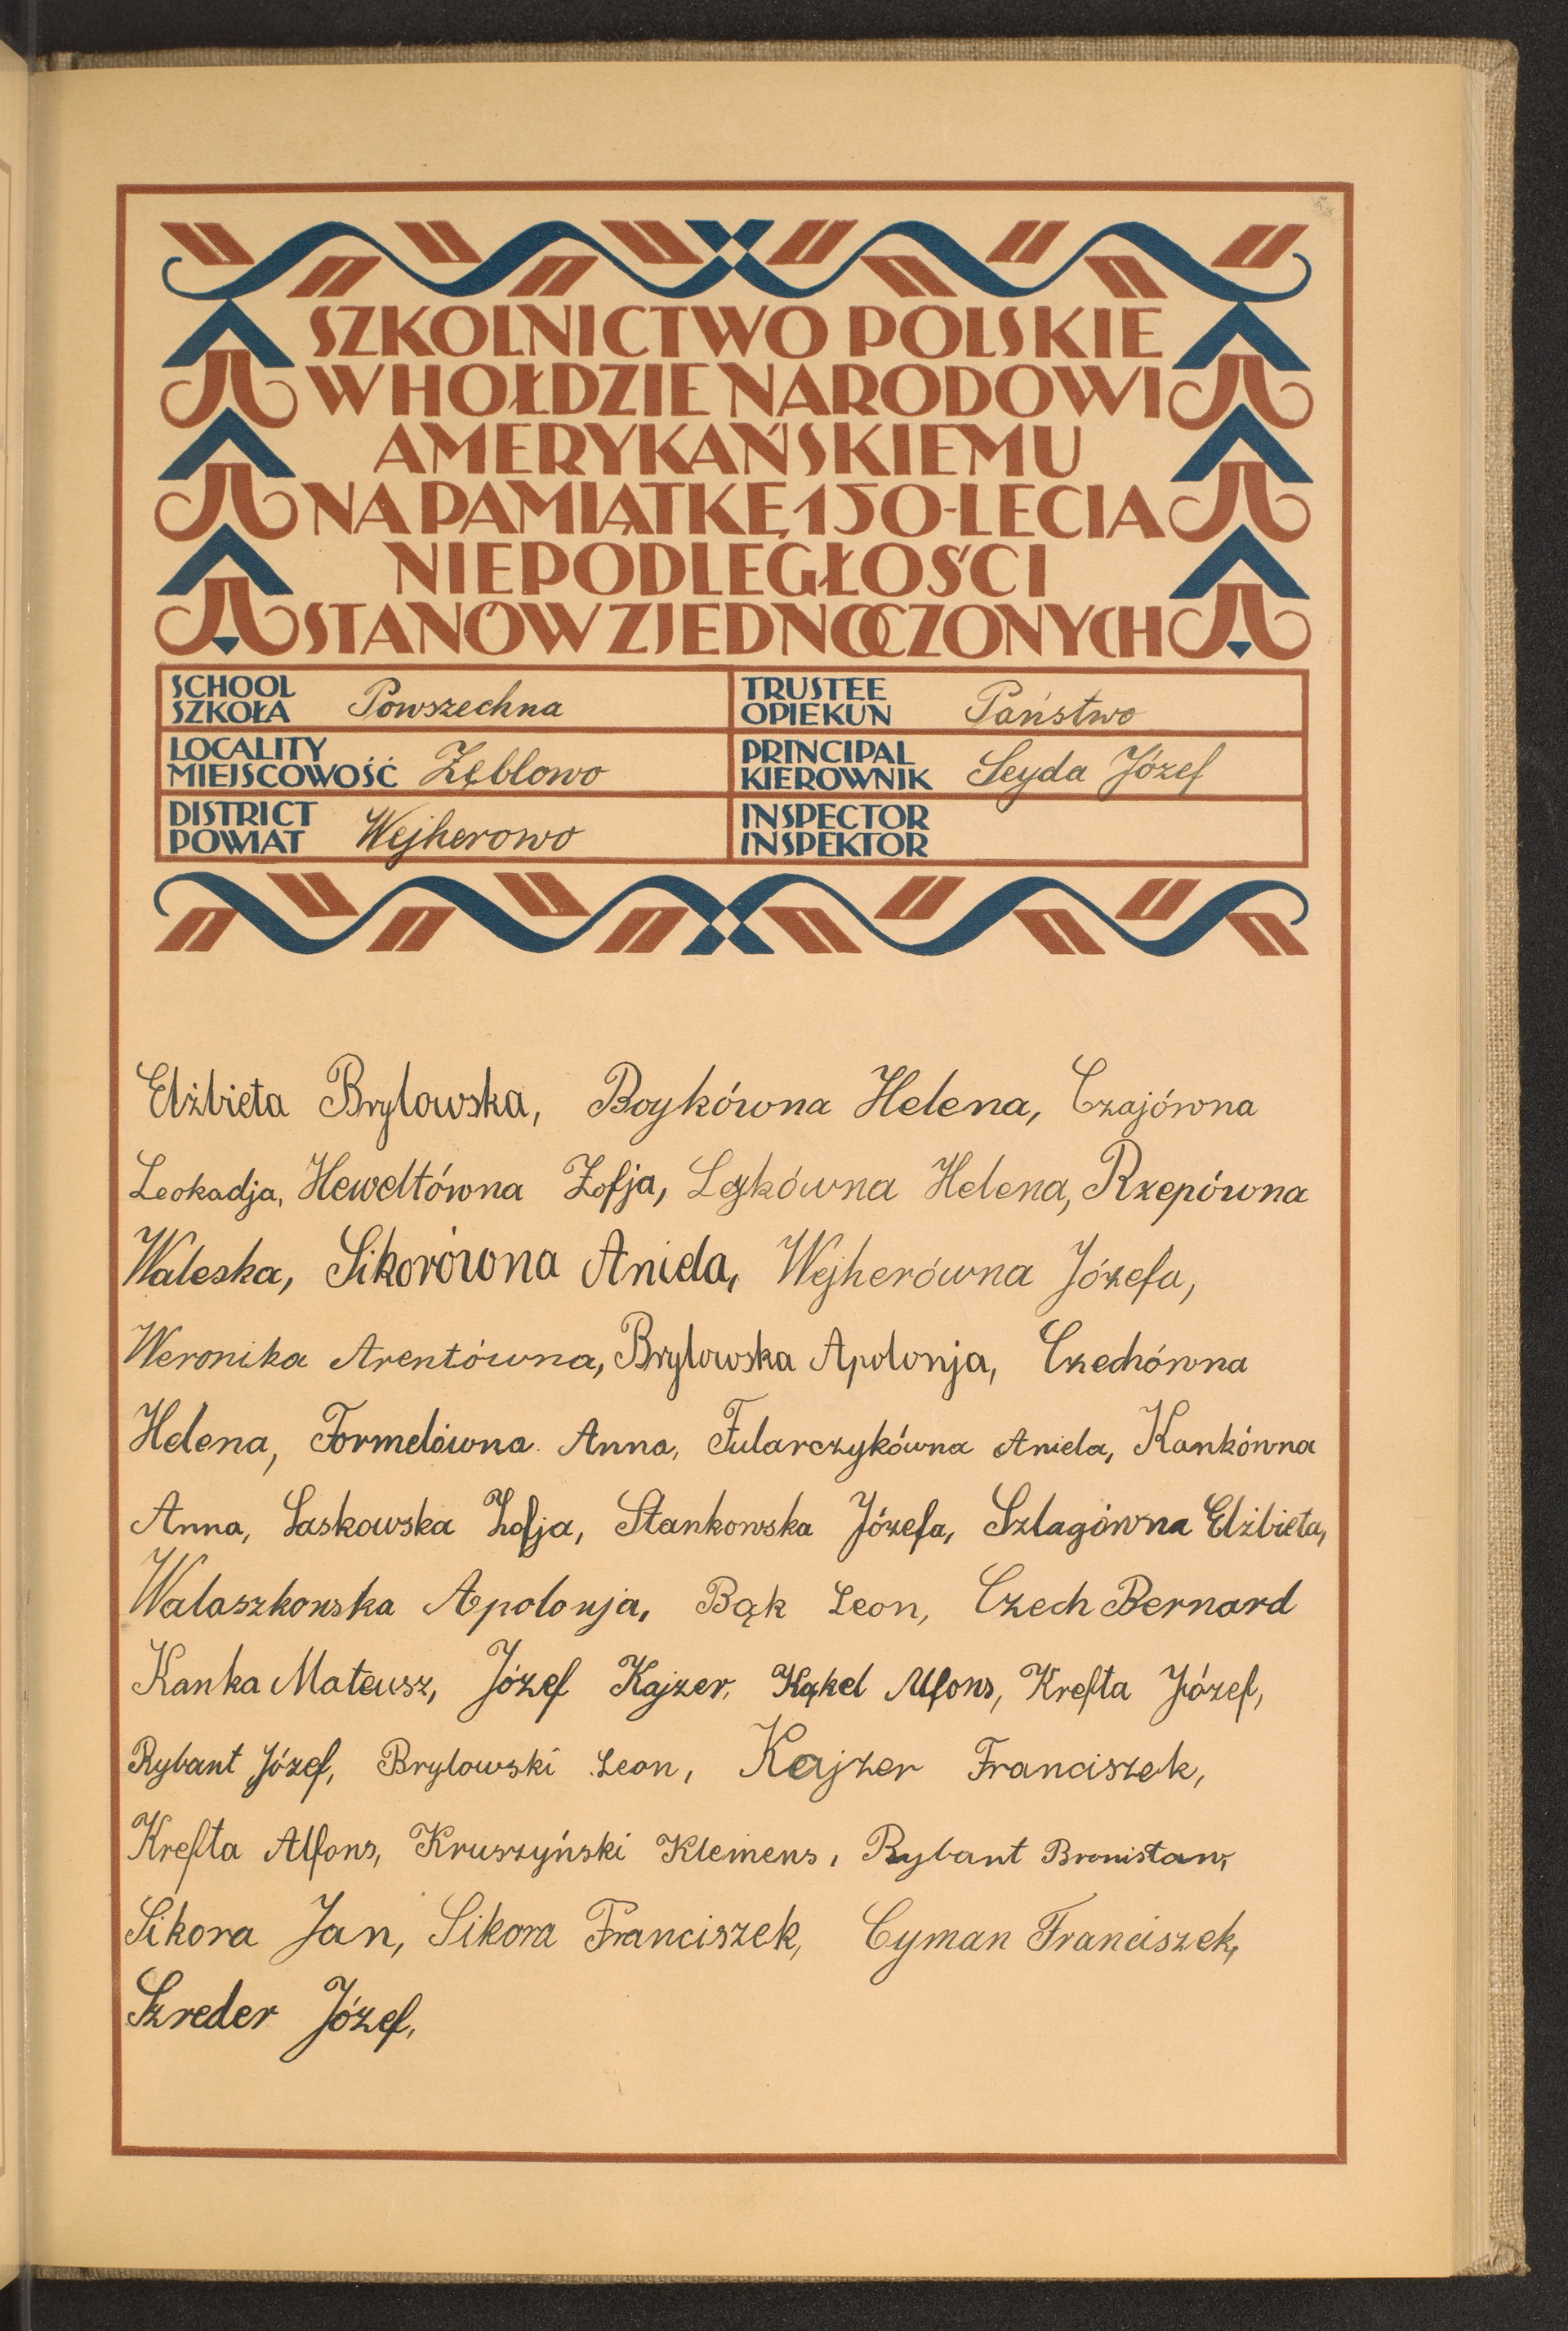 SZKOLNICTWO POLSKIE
W HOŁDZIE NARODOWI
AMERYKAŃSKIEMU
NA PAMIĄTKĘ 150-LECIA
NIEPODLEGŁOŚCI
STANÓW ZJEDNOCZONYCH
SCHOOL
SZKOŁA Powszechna
TRUSTEE
OPIEKUN Państwo
LOCALITY
MIEJSCOWOŚĆ Zęblowo
PRINCIPAL
KIEROWNIK Seyda Józef
DISTRICT
POWIAT Wejherowo
INSPECTOR
INSPEKTOR
Elżbieta Brylowska, Boykówna Helena, Czajówna
Leokadja, Heweltówna Zofja, Leykówna Helena, Rzepówna
Waleska, Sikorówna Aniela, Wejherówna Józefa,
Weronika Arentówna, Brylowska Apolonja, Czechówna
Helena, Formelówna Anna, Fularczykówna Aniela, Kankówna
Anna, Laskowska Zofja, Stankowska Józefa, Szlagówna Elżbieta,
Walaszkowska Apolonja, Bąk Leon, Czech Bernard
Kanka Mateusz, Józef Kajzer, Kąkel Alfons, Krefta Józef,
Rybant Józef, Brylowski Leon, Kajzer Franciszek,
Krefta Alfons, Kruszyński Klemens, Rybant Bronisław,
Sikora Jan, Sikora Franciszek, Cyman Franciszek,
Szreder Józef,